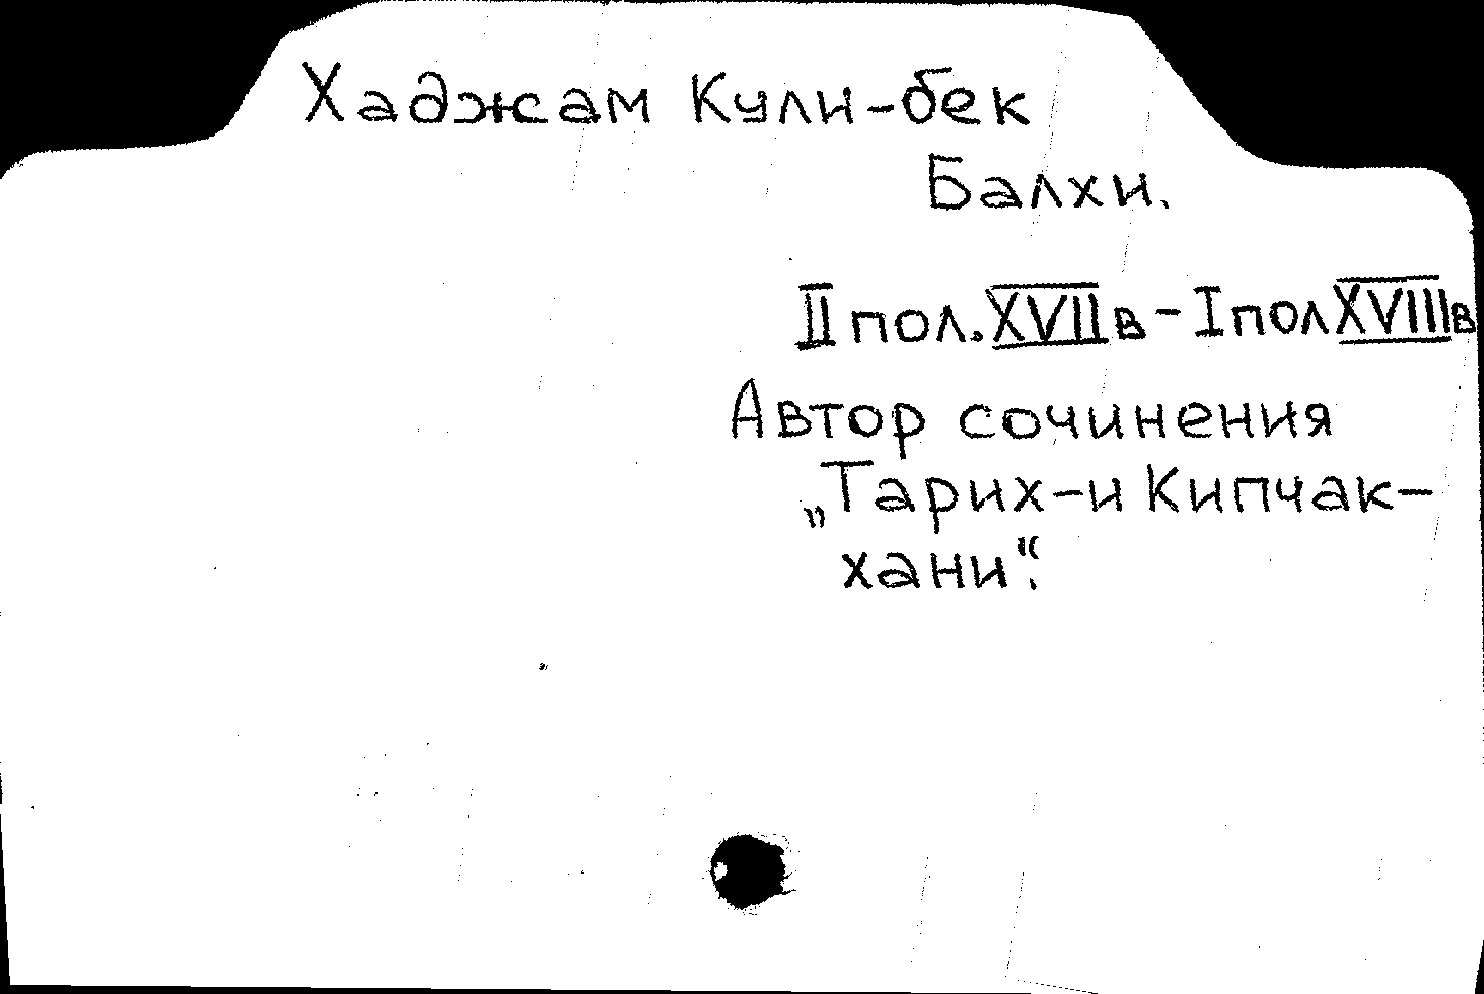 Хаджам Кули-бек
Балхи.
II пол. XVII в - I пол XVIII в
Автор сочинения
„Тарих-и Кипчак-
хани“.